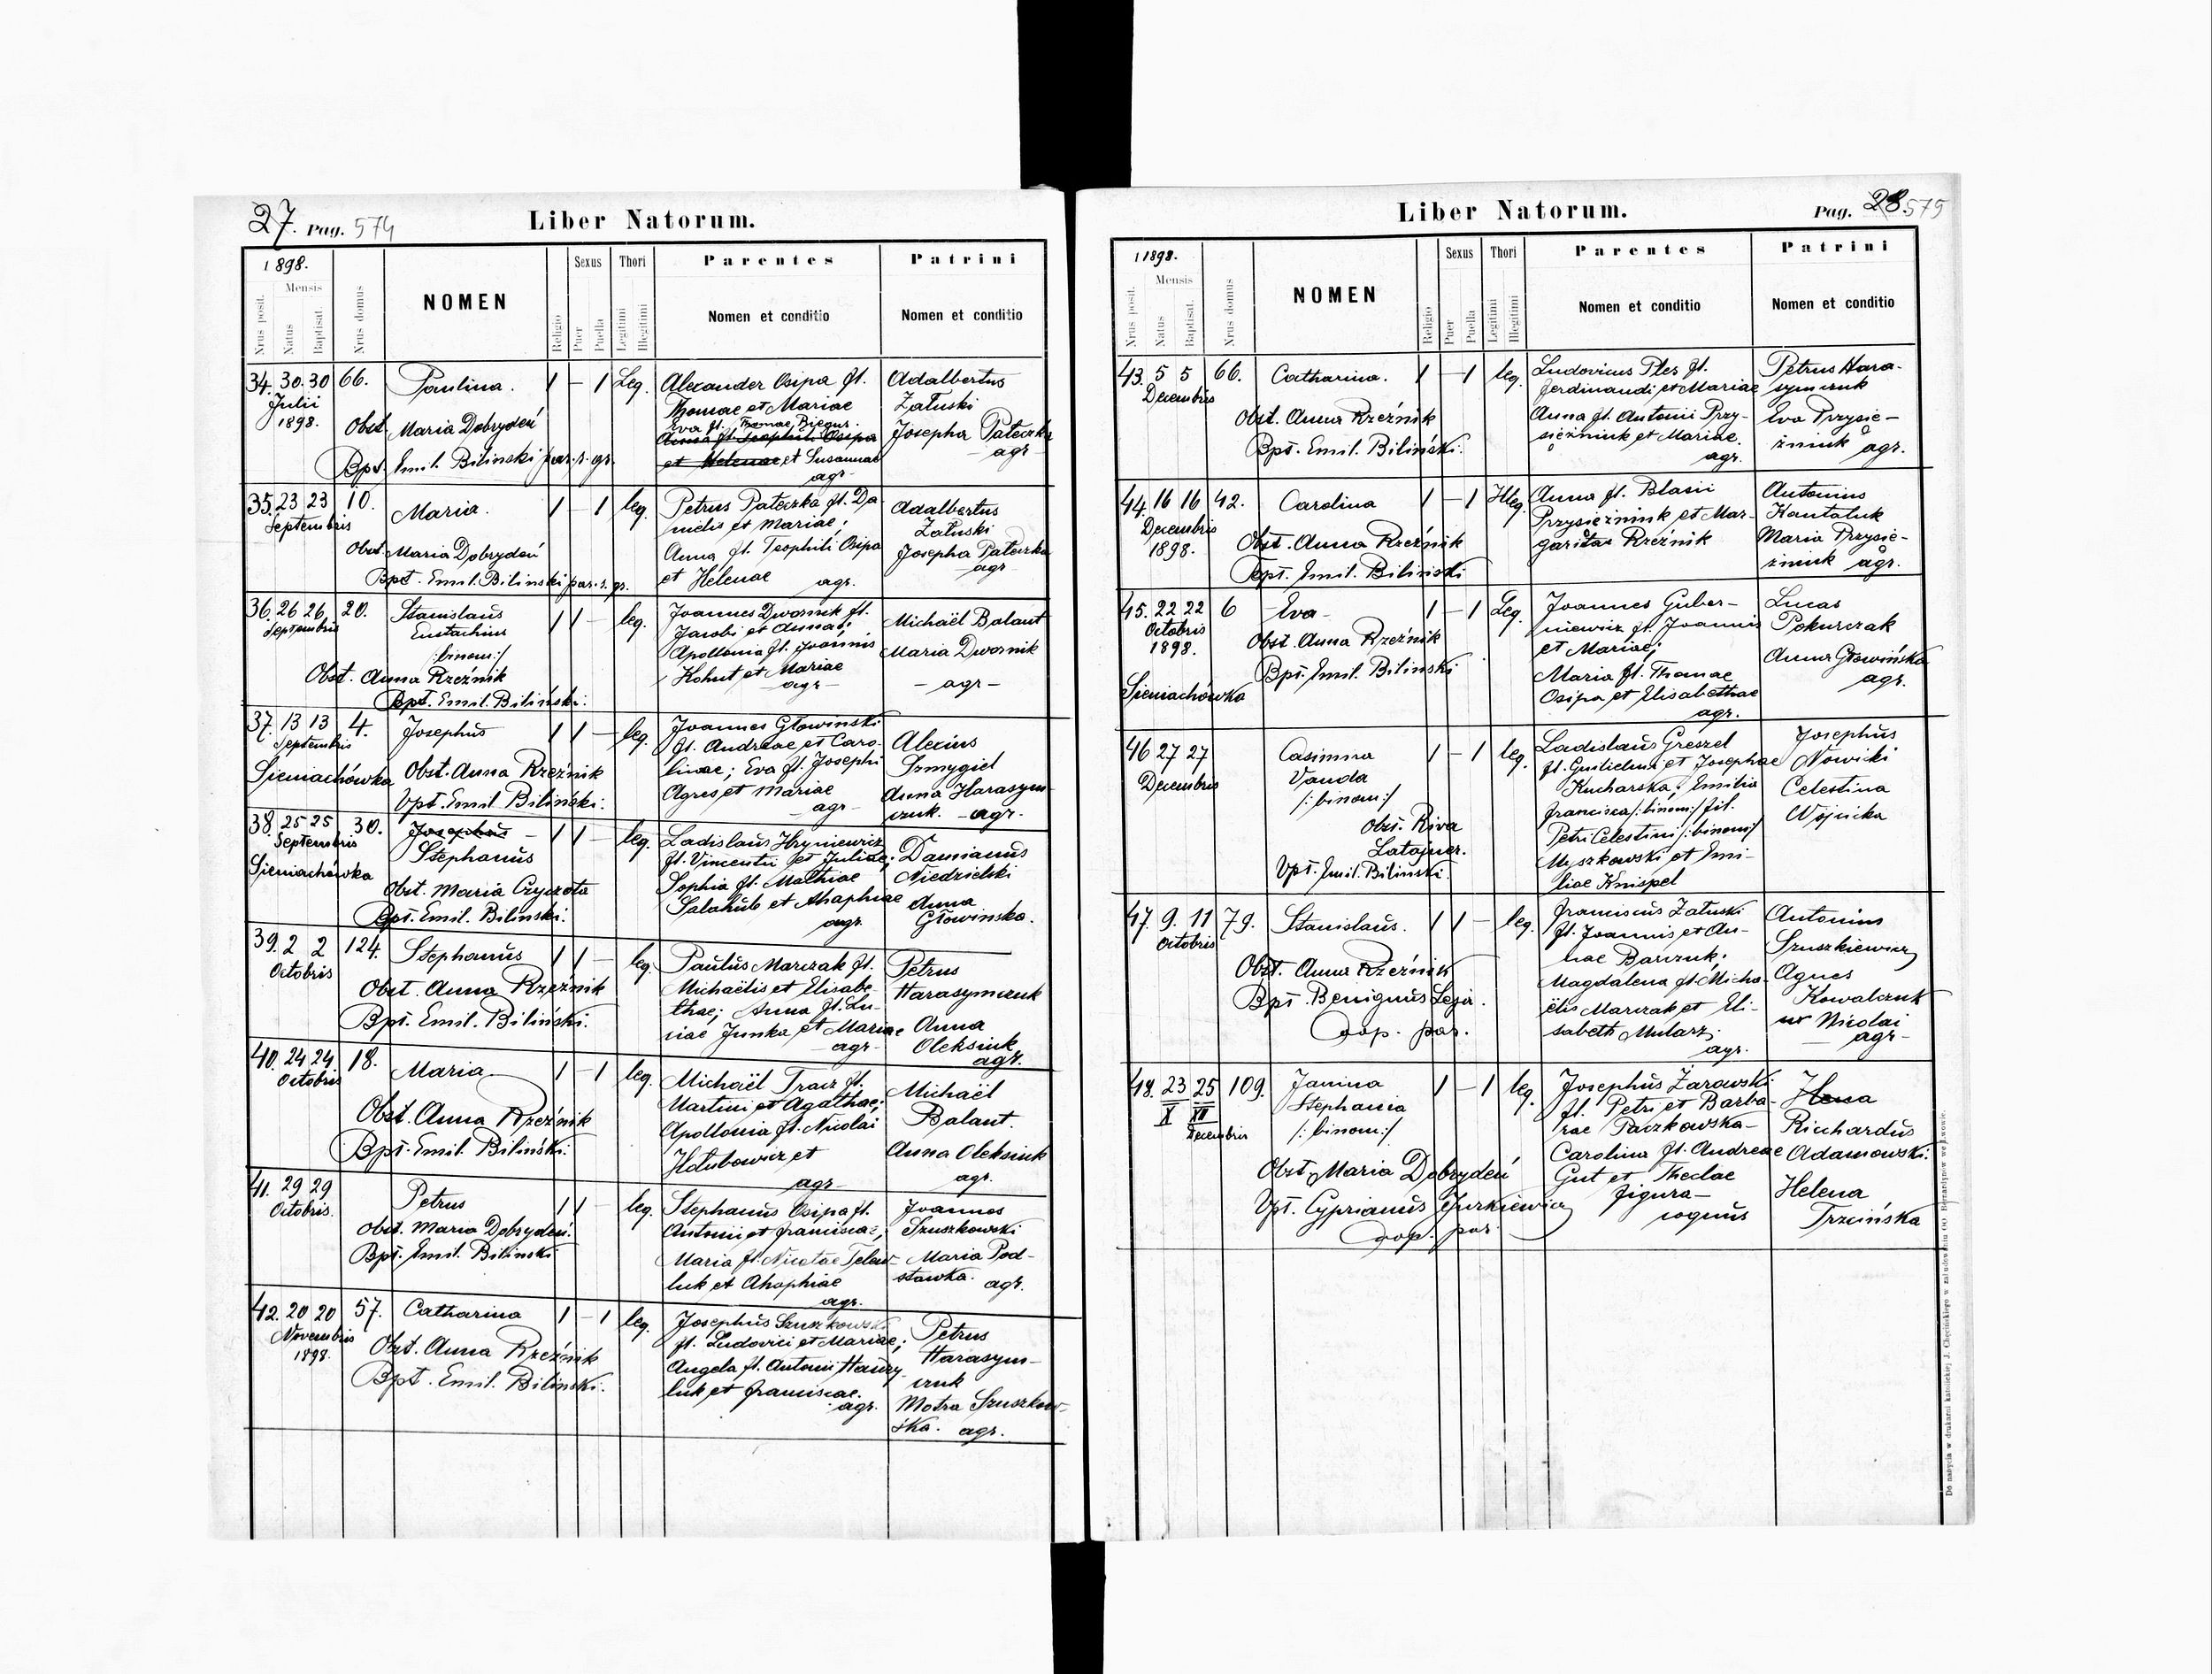 27. Pag. 574
Liber Natorum.
1898.
Nrus posit.
Mensis
Natus
Baptisat.
Nrus domus
NOMEN
Religio
Sexus
Puer
Puella
Thori
Legitimi
Illegitimi
Parentes
Nomen et conditio
Patrini
Nomen et conditio
34. 30. 30 66. Paulina. 1 – 1 Leg.
Julii
1898.
Obst. Maria Dobrydeń
Bpt. Emil. Bilinski par. r. gr.
Alexander Osipa fl.
Thomae et Mariae
Eva fl. Thomae Biegus
Anna fl. Teophili Osipa
et Helenae et Susannae
agr.
Adalbertus
Załuski
Josepha Pateczka
agr –
35. 23 23 10. Maria. 1 – 1 leg.
Septembris
Obst. Maria Dobrydeń
Bpt. Emil. Bilinski par. r. gr.
Petrus Pateczka fl. Da-
nielis et Mariae;
Anna fl. Teophili Osipa
et Helenae agr.
Adalbertus
Załuski
Josepha Pateczka
agr
36. 26 26 20. Stanislaus 1 1 – leg.
Septembris
Eustachius
/:binom:/
Obst. Anna Rzeźnik
Bpt. Emil. Biliński.
Joannes Dwornik fl.
Jacobi et Annae;
Apollonia fl. Joannis
Kohut et Mariae
– agr –
Michaël Balant
Maria Dwornik
– agr –
37. 13 13 4. Josephus 1 1 – leg.
Septembris
Sieniachówka
Obst. Anna Rzeźnik
Bpt. Emil Biliński.
Joannes Głowinski
fl. Andreae et Caro-
linae; Eva fl. Josephi
Agres et Mariae
agr –
Alexius
Szmygiel
Anna Harasym-
czuk. – agr.
38. 25 25 30. Josephus – 1 1 – leg.
Septembris
Sieniachówka
Stephanus
Obst. Maria Czyczota
Bpt. Emil. Biliński.
Ladislaus Hryniewicz
fl. Vincentii et Juliae;
Sophia fl. Mathiae
Salahub et Ahaphiae
agr.
Damianus
Niedzielski
Anna
Głowinska.
39. 2 2 124. Stephanus 1 1 – leg.
Octobris
Obst. Anna Rzeźnik
Bpt. Emil. Biliński.
Paulus Marczak fl.
Michaëlis et Elisabe-
thae; Anna fl. Lu-
cae Junka et Mariae
agr –
Petrus
Harasymczuk
Anna
Oleksiuk
agr.
40. 24 24 18. Maria 1 – 1 leg.
Octobris
Obst. Anna Rzeźnik
Bpt. Emil. Biliński.
Michaël Tracz fl.
Martini et Agathae;
Apollonia fl. Nicolai
Hołubowicz et
agr –
Michaël
Balant.
Anna Oleksiuk
agr.
41. 29 29 Petrus 1 1 leg.
Octobris.
Obst. Maria Dobrydeń.
Bpt. Emil. Biliński
Stephanus Osipa fl.
Antonii et Franciscae;
Maria fl. Nicolae
luk et Ahaphiae
agr.
Joannes
Szuszkowski
Maria Pod-
stawka. agr.
42. 20 20 57. Catharina 1 – 1 leg.
Novembris
1898.
Obst. Anna Rzeźnik
Bpt. Emil. Biliński.
Josephus Szuszkowski
fl. Ludovici et Mariae;
Angela fl. Antonii Hawry-
luk et Franciscae.
agr.
Petrus
Harasym-
czuk
Motra Szuszkow-
ska. agr.
Liber Natorum.
Pag. 28. 575
1898.
Nrus posit.
Mensis
Natus
Baptisat.
Nrus domus
NOMEN
Religio
Sexus
Puer
Puella
Thori
Legitimi
Illegitimi
Parentes
Nomen et conditio
Patrini
Nomen et conditio
43. 5 5 66. Catharina. 1 – 1 leg.
Decembris
Obst. Anna Rzeźnik
Bpt. Emil. Biliński.
Ludovicus Ples fl.
Ferdinandi et Mariae
Anna fl. Antonii Przy-
sięźniuk et Mariae.
agr.
Petrus Hara-
symczuk
Eva Przysię-
źniuk agr.
44. 16 16 42. Carolina 1 – 1 Illeg.
Decembris
1898.
Obst. Anna Rzeźnik
Bpt. Emil. Biliński
Anna fl. Blasii
Przysięźniuk et Mar-
garitae Rzeźnik
Antonius
Kantaluk
Maria Przysię-
źniuk agr.
45. 22 22 6 Eva 1 – 1 Leg.
Octobris
1898.
Sieniachówka
Obst. Anna Rzeźnik
Bpt. Emil. Biliński
Joannes Guber-
niewicz fl. Joannis
et Mariae;
Maria fl. Thomae
Osipa et Elisabethae
agr.
Lucas
Pokurczak
Anna Głowińska
agr.
46 27 27 Casimira 1 – 1 leg.
Decembris
Vanda
/:binom:/
Obst. Riva
Latajner.
Bpt. Emil. Biliński
Ladislaus Greszel
fl. Guilielmi et Josephae
Kucharska; Emilia
Francisca /:binom:/ fil.
Petri Celestini /:binom:/
Myszkowski et Emi-
liae Knispel
Josephus
Nowicki
Celestina
Wójnicka
47. 9. 11 79. Stanislaus. 1 1 – leg.
Octobris
Obst. Anna Rzeźnik
Bpt. Benignus
Coop. par.
Franciscus Załuski
fl. Joannis et An-
nae Barczuk;
Magdalena fl. Micha-
ëlis Marczak et Eli-
sabeth Mularz;
agr.
Antonius
Szuszkiewicz
Agnes
Kowalczuk
ux Nicolai
– agr –
48. 23 25 109. Janina 1 – 1 leg.
X XII
Decembris
Stephania
/:binom:/
Obst. Maria Dobrydeń
Bpt. Cyprianus Jurkiewicz
Coop. par.
Josephus Żarowski
fl. Petri et Barba-
rae Paczkowska –
Carolina fl. Andreae
Gut et Theclae
figura –
coquus
Richardus
Adamowski.
Helena
Trzcińska
De nabycia w drukarni katolickiej J. Chęcińskiego w zabudowaniu OO. Bernardynów we Lwowie.